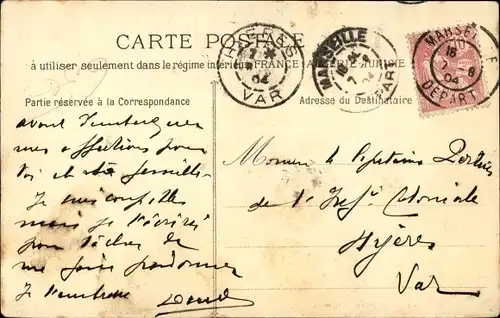 CARTE POSTALE
à utiliser seulement dans le régime intérieur FRANCE ALGÉRIE
Partie réservée à la Correspondance
Adresse du Destinataire
HYÈRES
04
VAR
MARSEILLE
MARSEILLE
18
7 - 8
04
DÉPART
10
avant
mes affections pour
toi et ta famille
Je suis
mais je t'écrirai
pour tâcher de
me faire pardonner
Je t'embrasse
Monsieur le Capitaine
de l'Infie Coloniale
Hyères
Var